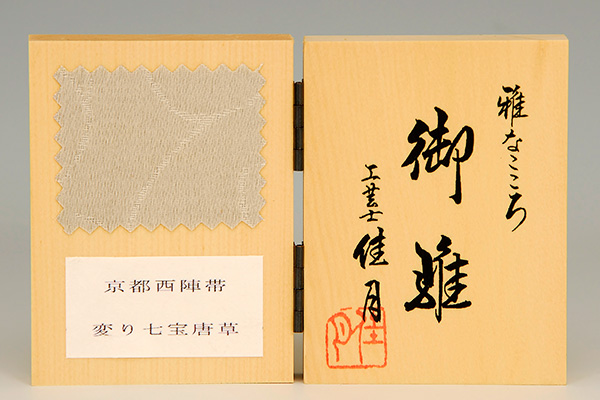 雅なこころ
御雛
工芸士 佳月
京都西陣帯
変り七宝唐草
佳月